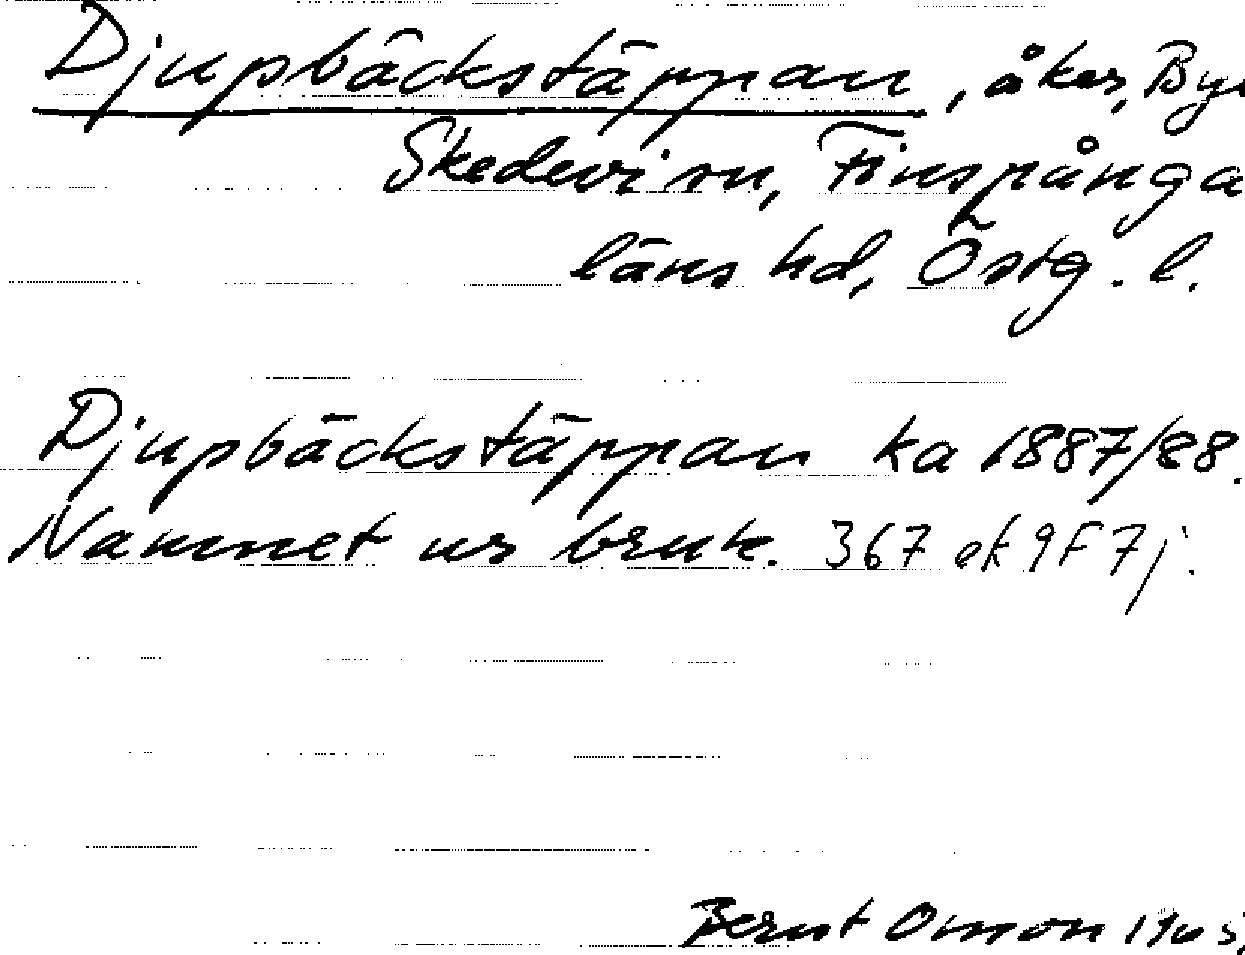 Djupbäckstäppan, åker, By
Skedevi sn, Finspånga
läns hd, Östg. l.
Djupbäckstäppan ka 1887/88.
Namnet ur bruk. 367 ek 9F 7j.
Bernt Omon 1965,